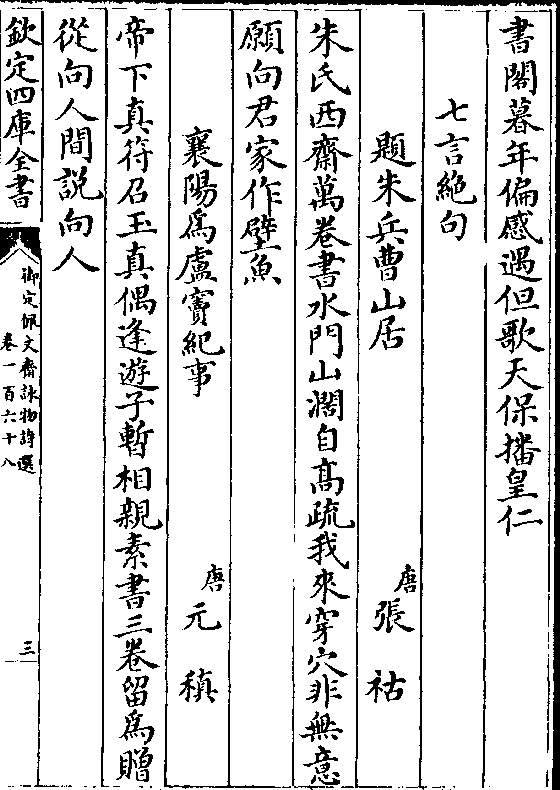 書閣暮年偏感遇但歌天保播皇仁
七言絶句
題朱兵曹山居
唐張祜
朱氏西齋萬卷書水門山濶自髙疏我來穿穴非無意
願向君家作壁魚
襄陽爲盧竇紀事
唐元稹
帝下真符召玉真偶逢遊子暫相親素書三卷留爲贈
從向人間説向人
欽定四庫全書
御定佩文齋詠物詩選
卷一百六十八
三